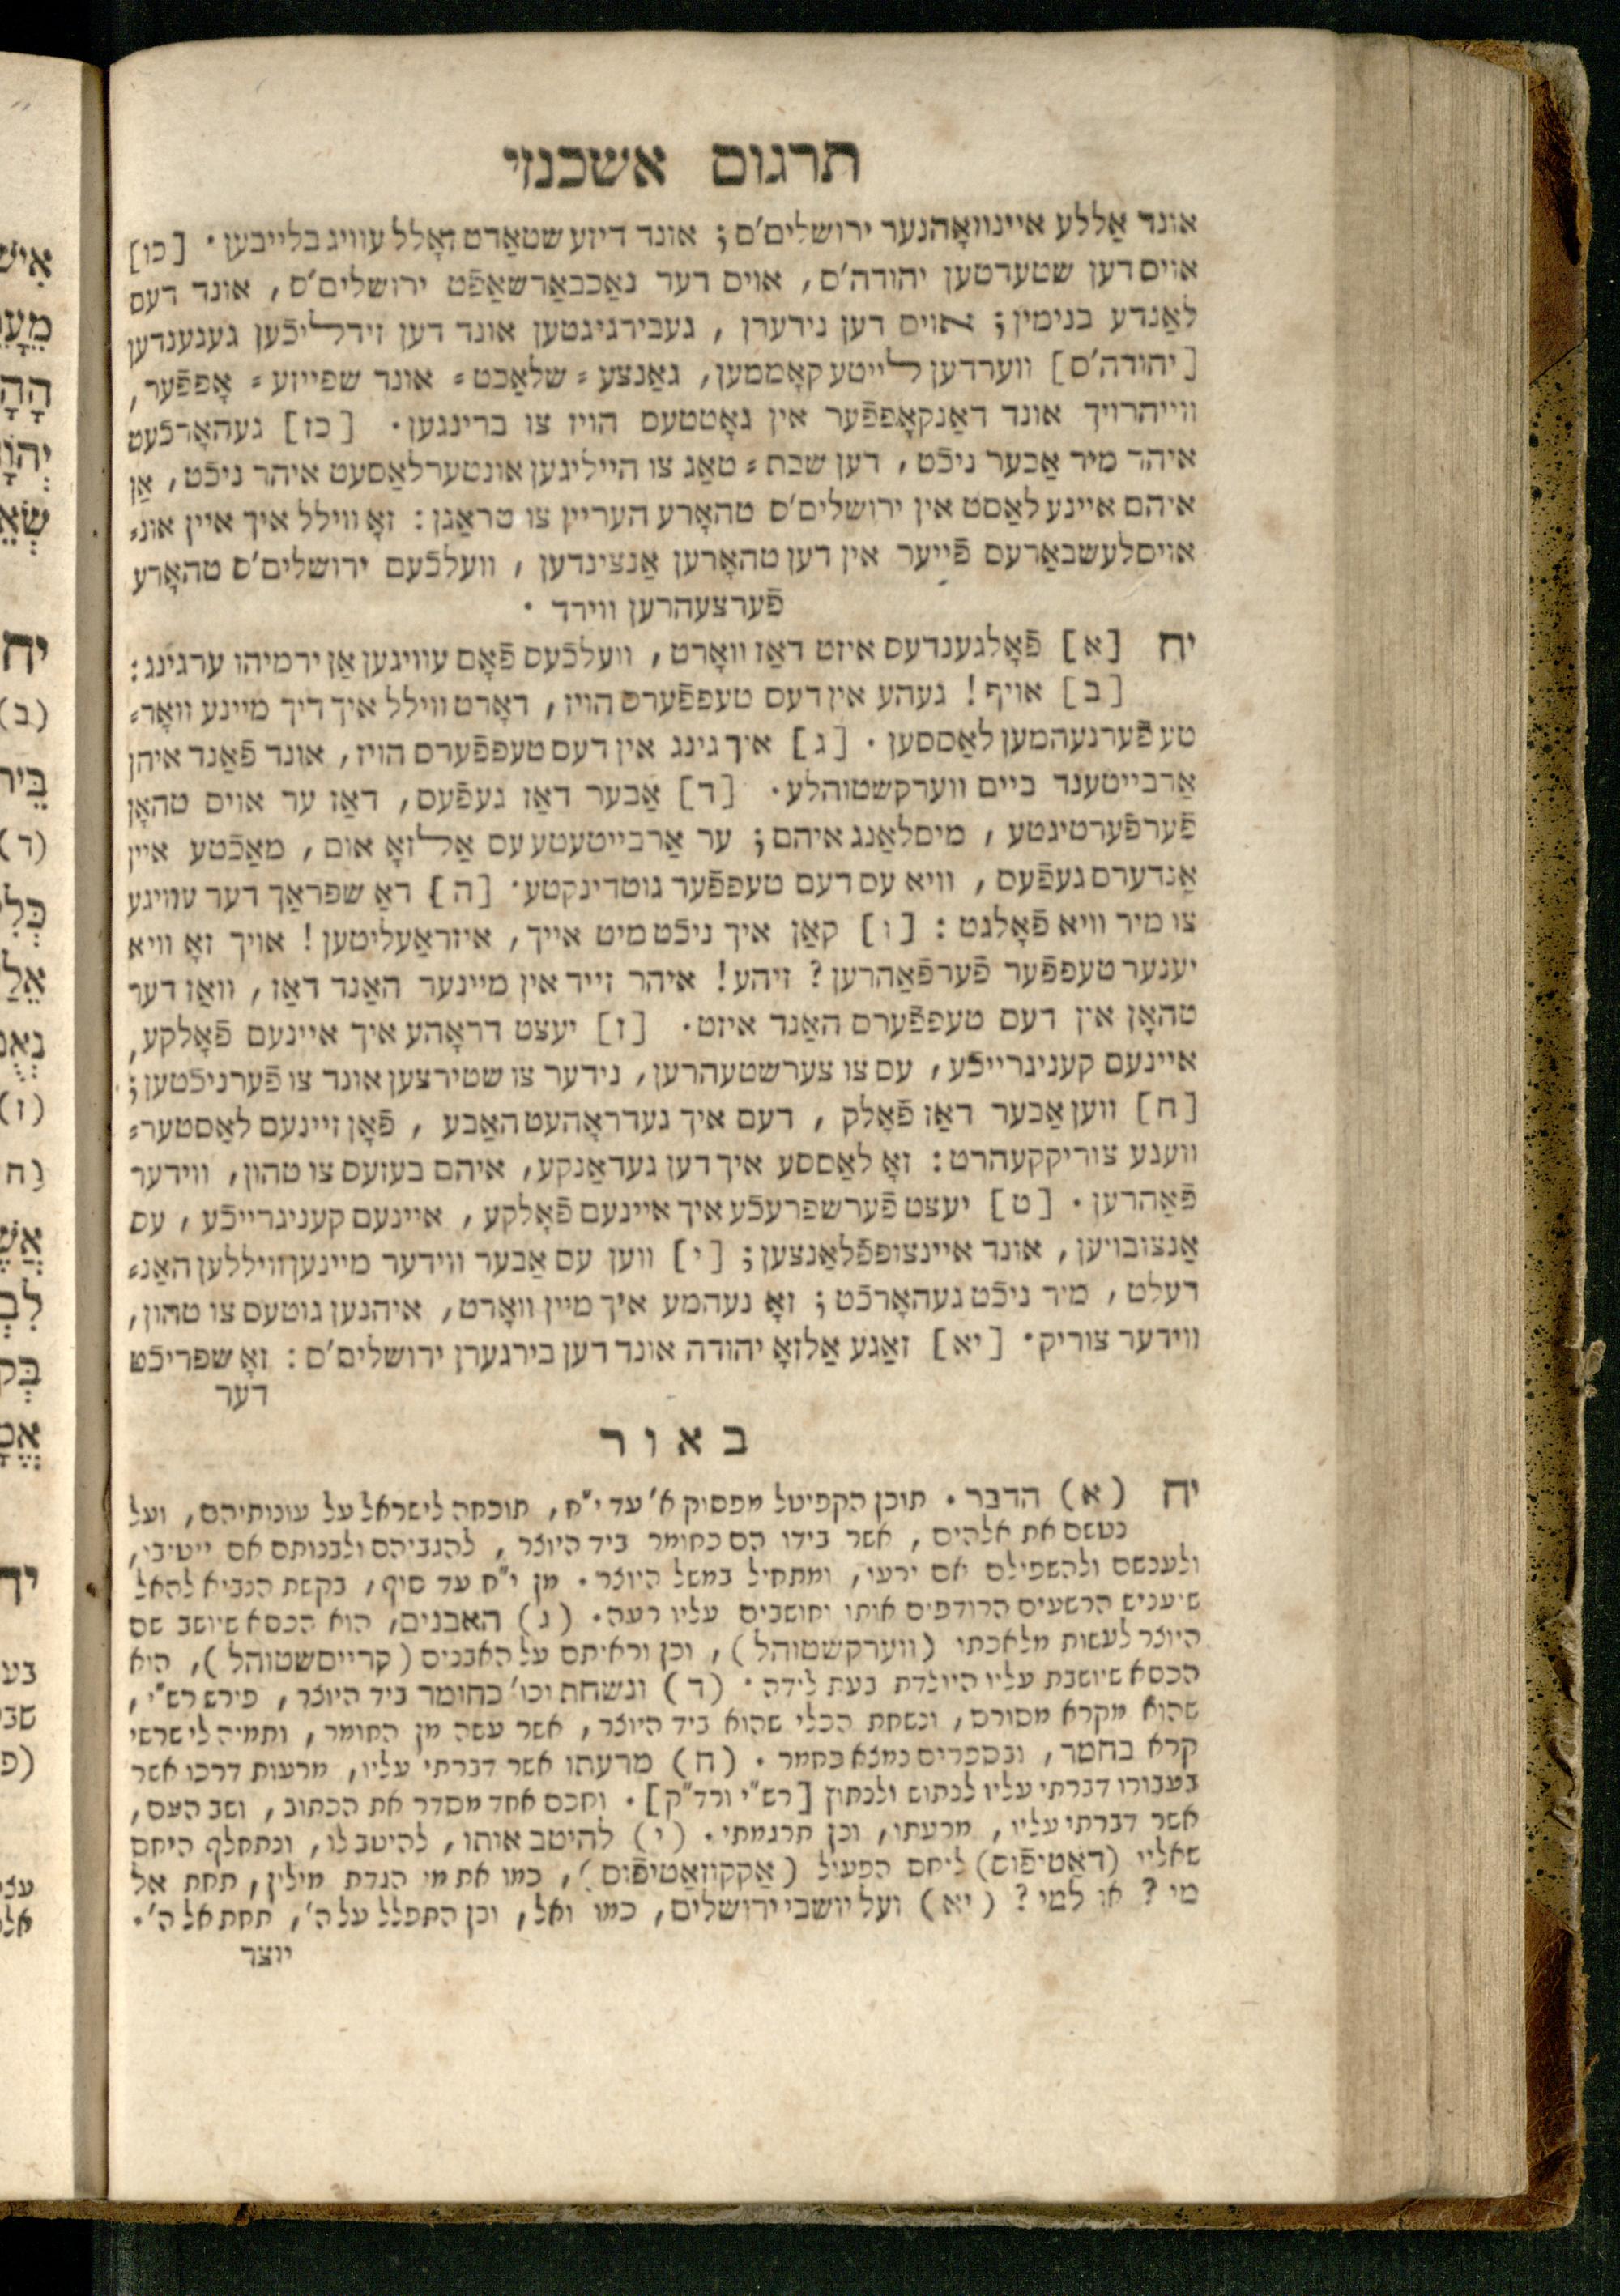 תרגום אשכנזי
אונד אַללע איינוואָהנער ירושלים'ס; אונד דיזע שטאַדט זאָלל עוויג בלייבען · [כו]
אויס דען שטעדטען יהודה'ס, אויס דער נאַכבאַרשאַפֿט ירושלים'ס, אונד דעם
לאַנדע בנימין; אויס דען נידערן, געבירגיגטען אונד דען זידליכֿען געגענדען
[יהודה'ס] ווערדען לייטע קאָממען, גאַנצע⸗ שלאַכט⸗ אונד שפייזע⸗ אָפפֿער,
ווייהרויך אונד דאַנקאָפפֿער אין גאָטטעס הויז צו ברינגען· [כז] געהאָרכֿעט
איהר מיר אַבער ניכֿט, דען שבת⸗ טאַג צו הייליגען אונטערלאַסעט איהר ניכֿט, אַן
איהם איינע לאַסט אין ירושלים'ס טהאָרע העריין צו טראַגן: זאָ ווילל איך איין אונ⸗
אויסלעשבאַרעס פֿייער אין דען טהאָרען אַנצינדען, וועלכֿעס ירושלים'ס טהאָרע
פֿערצעהרען ווירד ·
יח [א] פֿאָלגענדעס איזט דאַז וואָרט, וועלכֿעס פֿאָם עוויגען אַן ירמיהו ערגינג:
[ב] אויף! געהע אין דעס טעפפֿערס הויז, דאָרט ווילל איך דיך מיינע וואָר⸗
טע פֿערנעהמען לאַססען · [ג] איך גינג אין דעס טעפפֿערס הויז, אונד פֿאַנד איהן
אַרבייטענד ביים ווערקשטוהלע· [ד] אַבער דאַז געפֿעס, דאַז ער אויס טהאָן
פֿערפֿערטיגטע, מיסלאַנג איהם; ער אַרבייטעטע עס אַלזאָ אום, מאַכֿטע איין
אַנדערס געפֿעס, וויא עס דעם טעפפֿער גוטדינקטע· [ה] דאַ שפראַך דער עוויגע
צו מיר וויא פֿאָלגט: [ו] קאַן איך ניכֿט מיט אייך, איזראַעליטען! אויך זאָ וויא
יענער טעפפֿער פֿערפֿאַהרען? זיהע! איהר זייד אין מיינער האַנד דאַז, וואַז דער
טהאָן אין דעס טעפפֿערס האַנד איזט· [ז] יעצט דראָהע איך איינעם פֿאָלקע,
איינעם קעניגרייכֿע, עס צו צערשטעהרען, נידער צו שטירצען אונד צו פֿערניכֿטען;
[ח] ווען אַבער דאַז פֿאָלק, דעם איך געדראָהעט האַבע, פֿאָן זיינעם לאַסטער⸗
וועגע צוריקקעהרט: זאָ לאַססע איך דען געדאַנקע, איהם בעזעס צו טהון, ווידער
פֿאַהרען· [ט] יעצט פֿערשפרעכֿע איך איינעם פֿאָלקע, איינעם קעניגרייכֿע, עס
אַנצובויען, אונד איינצופפֿלאַנצען; [י] ווען עס אַבער ווידער מיינען ווילללען האַנ⸗
דעלט, מיר ניכֿט געהאָרכֿט; זאָ נעהמע איך מיין וואָרט, איהנען גוטעס צו טהון,
ווידער צוריק· [יא] זאַגע אַלזאָ יהודה אונד דען בירגערן ירושלים'ס: זאָ שפריכֿט
דער
באור
יח (א) הדבר · תוכן הקפיטל מפסוק א' עד י"ח, תוכחה לישראל על עונותיהם, ועל
נטשם את אלהים, אשר בידו הם כחומר ביד היוצר, להגביהם ולבנותם אם ייטיבו,
ולענשם ולהשפילם אם ירעו, ומתחיל במשל היוצר · מן י"ח עד סוף, בקשת הנביא להאל
שיעניש הרשעים הרודפים אותו וחושבים עליו רעה· (ג) האבנים, הוא הכסא שיושב שם
היוצר לעשות מלאכתו (ווערקשטוהל), וכן וראיתם על האבנים (קרייסשטוהל), הוא
הכסא שיושבת עליו היולדת בעת לידה · (ד) ונשחת וכו' כחומר ביד היוצר, פירש רש"י,
שהוא מקרא מסורס, ונשחת הכלי שהוא ביד היוצר, אשר עשה מן החומר, ותמיה לי שרשי
קרא בחמר, ובספרים נמצא כחמר · (ח) מרעתו אשר דברתי עליו, מרעות דרכו אשר
בעבורו דברתי עליו לנתוש ולנתוץ [רש"י ורד"ק] · וחכם אחד מסדר את הכתוב, ושב העם,
אשר דברתי עליו, מרעתו, וכן תרגמתי · (י) להיטב אותו, להיטב לו, ונתחלף היחס
שאליו (דאַטיפֿוס) ליחס הפעול (אַקקוזאַטיפֿוס), כמו את מי הגדת מילין, תחת אל
מי? או למי? (יא) ועל יושבי ירושלים, כמו ואל, וכן התפלל על ה', תחת אל ה'·
יוצר